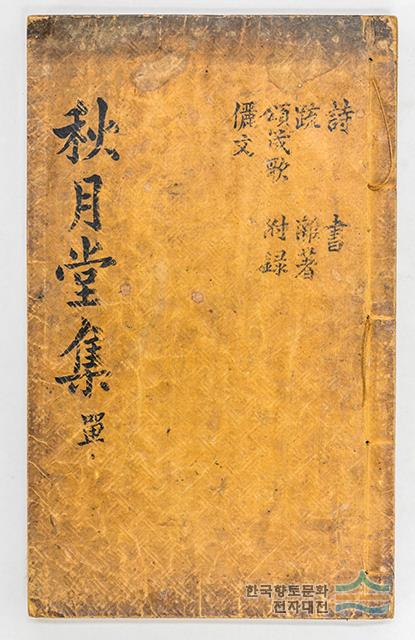 詩 書
疏 雜著
頌箴歌 附錄
儷文
秋月堂集 單
한국향토문화
전자대전